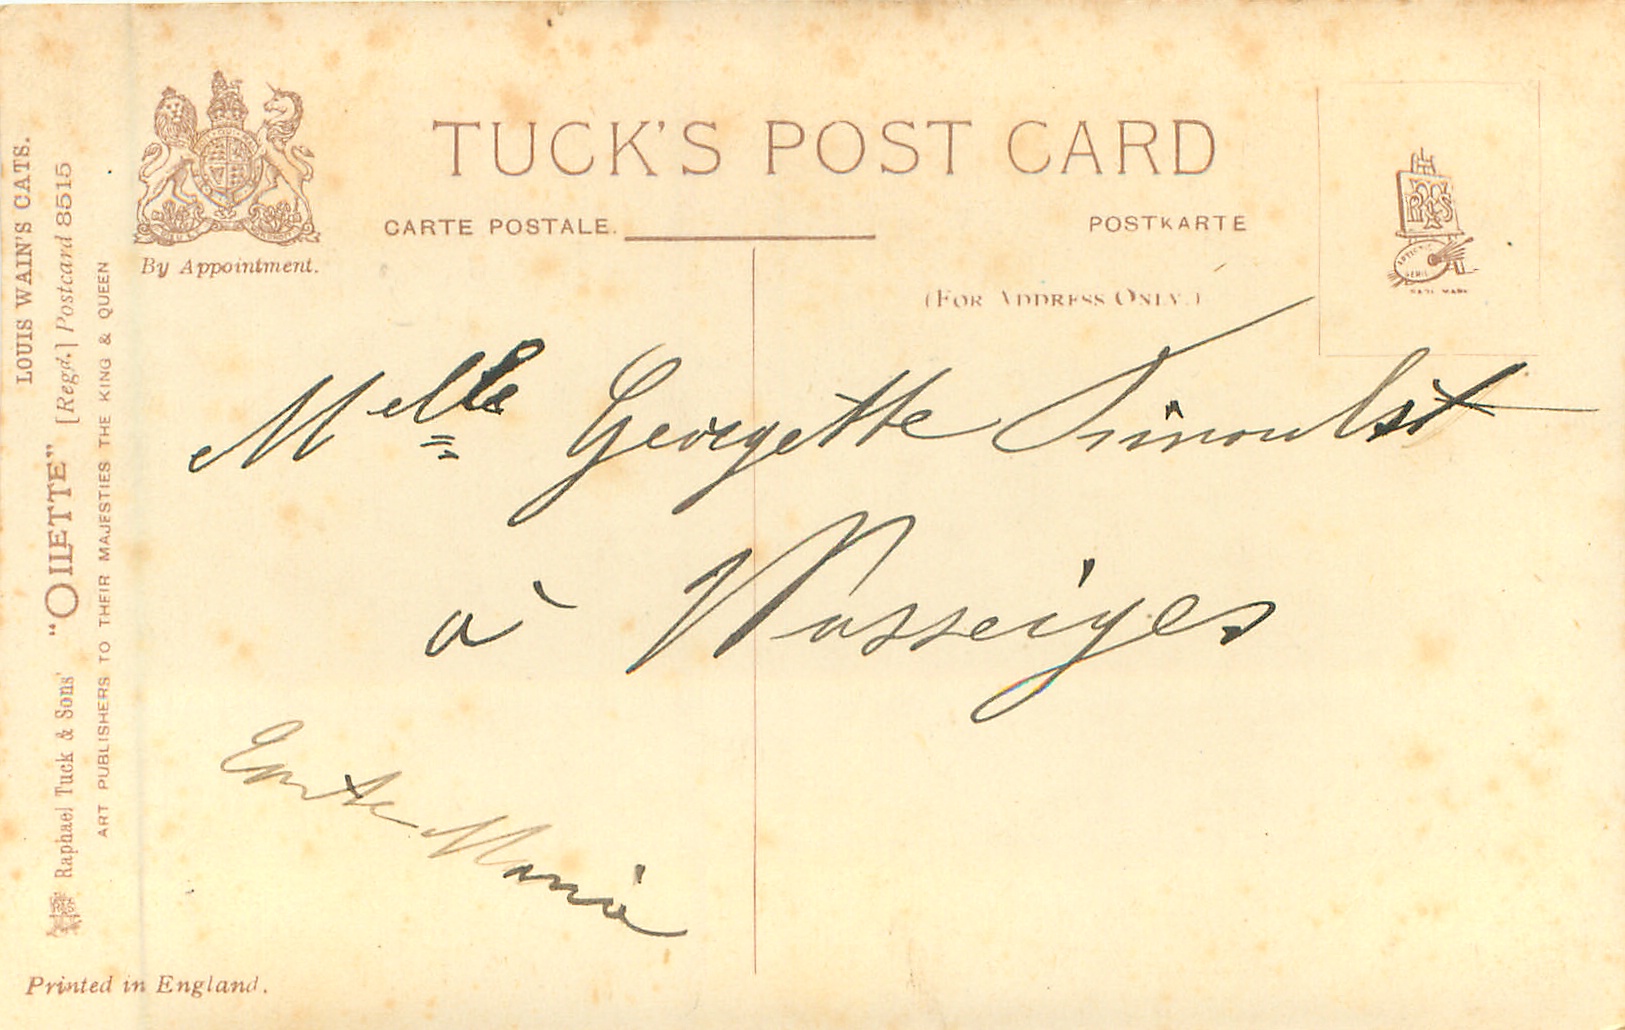 TUCK'S POST CARD
CARTE POSTALE.
POSTKARTE
By Appointment.
(FOR ADDRESS ONLY.)
LOUIS WAIN'S CATS.
Raphael Tuck & Sons' "OILETTE" [Regd.] Postcard 8515
ART PUBLISHERS TO THEIR MAJESTIES THE KING & QUEEN
Melle Georgette
à Wasseiges
Marie
Printed in England.